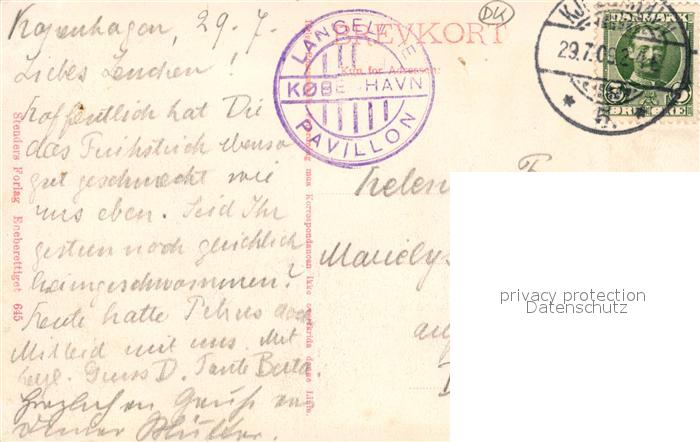 Kopenhagen, 29. 7.
Liebes Lenchen!
Hoffentlich hat Die
das Frühstück ebenso
gut geschmeckt wie
uns eben. Seid Ihr
gestern noch glücklich
heimgeschwommen?
Heute hatte Petrus doch
Mitleid mit uns. Mit
herzl. Gruss D. Tante Berta.
Herzlichen Gruß von
Deiner Mutter.
Stenders Forlag Eneberettiget 645
LANGELINIE
KØBENHAVN
PAVILLON
BREVKORT
Kun for Adressen.
maa Korrespondancen ikke overskride denne Linie.
DK
29.7.09
DANMARK
Helen
Marielys
privacy protection
Datenschutz